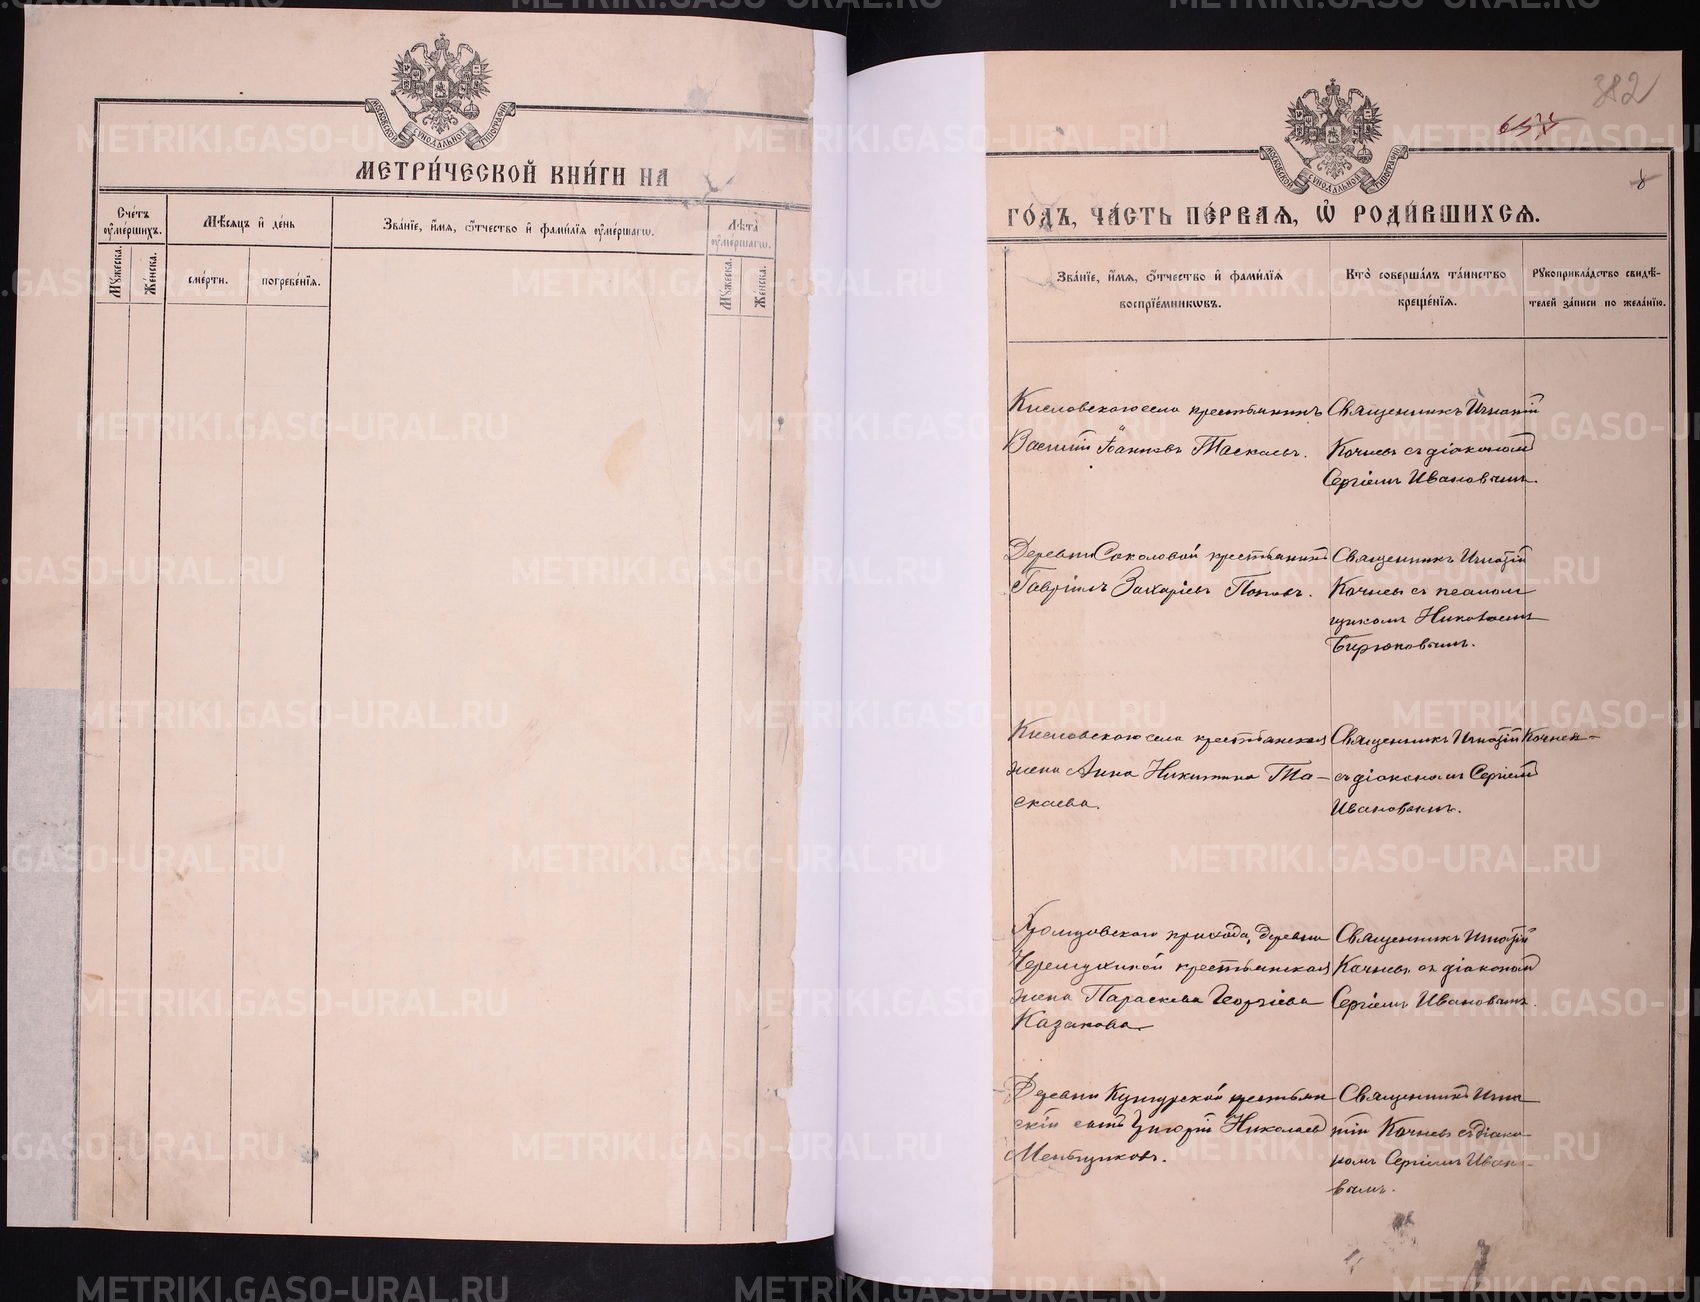 МОСКОВСКОЙ СѴНОДАЛЬНОЙ ТИПОГРАФІИ
МЕТРИ́ЧЕСКОЙ КНИ́ГИ НА
Сче́тъ ᲂу҆ме́ршихъ.
Мꙋ́жеска.
Же́нска.
Мѣ́сѧцъ и҆ де́нь
сме́рти.
погребе́нїѧ.
Зва́нїе, и҆́мѧ, ѻ҆́тчество и҆ фами́лїѧ ᲂу҆ме́ршагѡ.
Лѣ̀та ᲂу҆ме́ршагѡ.
Мꙋ́жеска.
Же́нска.
382
МОСКОВСКОЙ СѴНОДАЛЬНОЙ ТИПОГРАФІИ
ГО́ДЪ, ЧА́СТЬ ПЕ́РВАѦ, Ѡ҆ РОДИ́ВШИХСѦ.
Зва́нїе, и҆́мѧ, ѻ҆́тчество и҆ фами́лїѧ
воспрїе́мникѡвъ.
Кто̀ соверша́лъ та́инство
креще́нїѧ.
Рꙋкоприкла́дство свидѣ́-
телей за́писи по жела́нїю.
Кисловскаго села крестьянинъ
Василій Іоанновъ Таскаевъ.
Священникъ Игнатій
Кочневъ съ діакономъ
Сергіемъ Ивановымъ.
Деревни Соколовой крестьянинъ
Гавріилъ Захаріевъ Поповъ.
Священникъ Игнатій
Кочневъ съ псалом
щикомъ Николаемъ
Бирюковымъ.
Кисловскаго села крестьянская
жена Анна Никитина Та-
скаева.
Священникъ Игнатій Кочнев-
съ діакономъ Сергіемъ
Ивановымъ.
Хромцовскаго прихода, деревни
Черемухиной крестьянская
жена Параскева Георгіева
Казакова.
Священникъ Игнатій
Кочневъ съ діакономъ
Сергіемъ Ивановымъ.
Деревни крестьян
скій сынъ Григорій Николаевъ
Меньщиковъ.
Священникъ Игна
тій Кочневъ съ діако-
номъ Сергіемъ Ивано-
вымъ.
METRIKI.GASO-URAL.RU